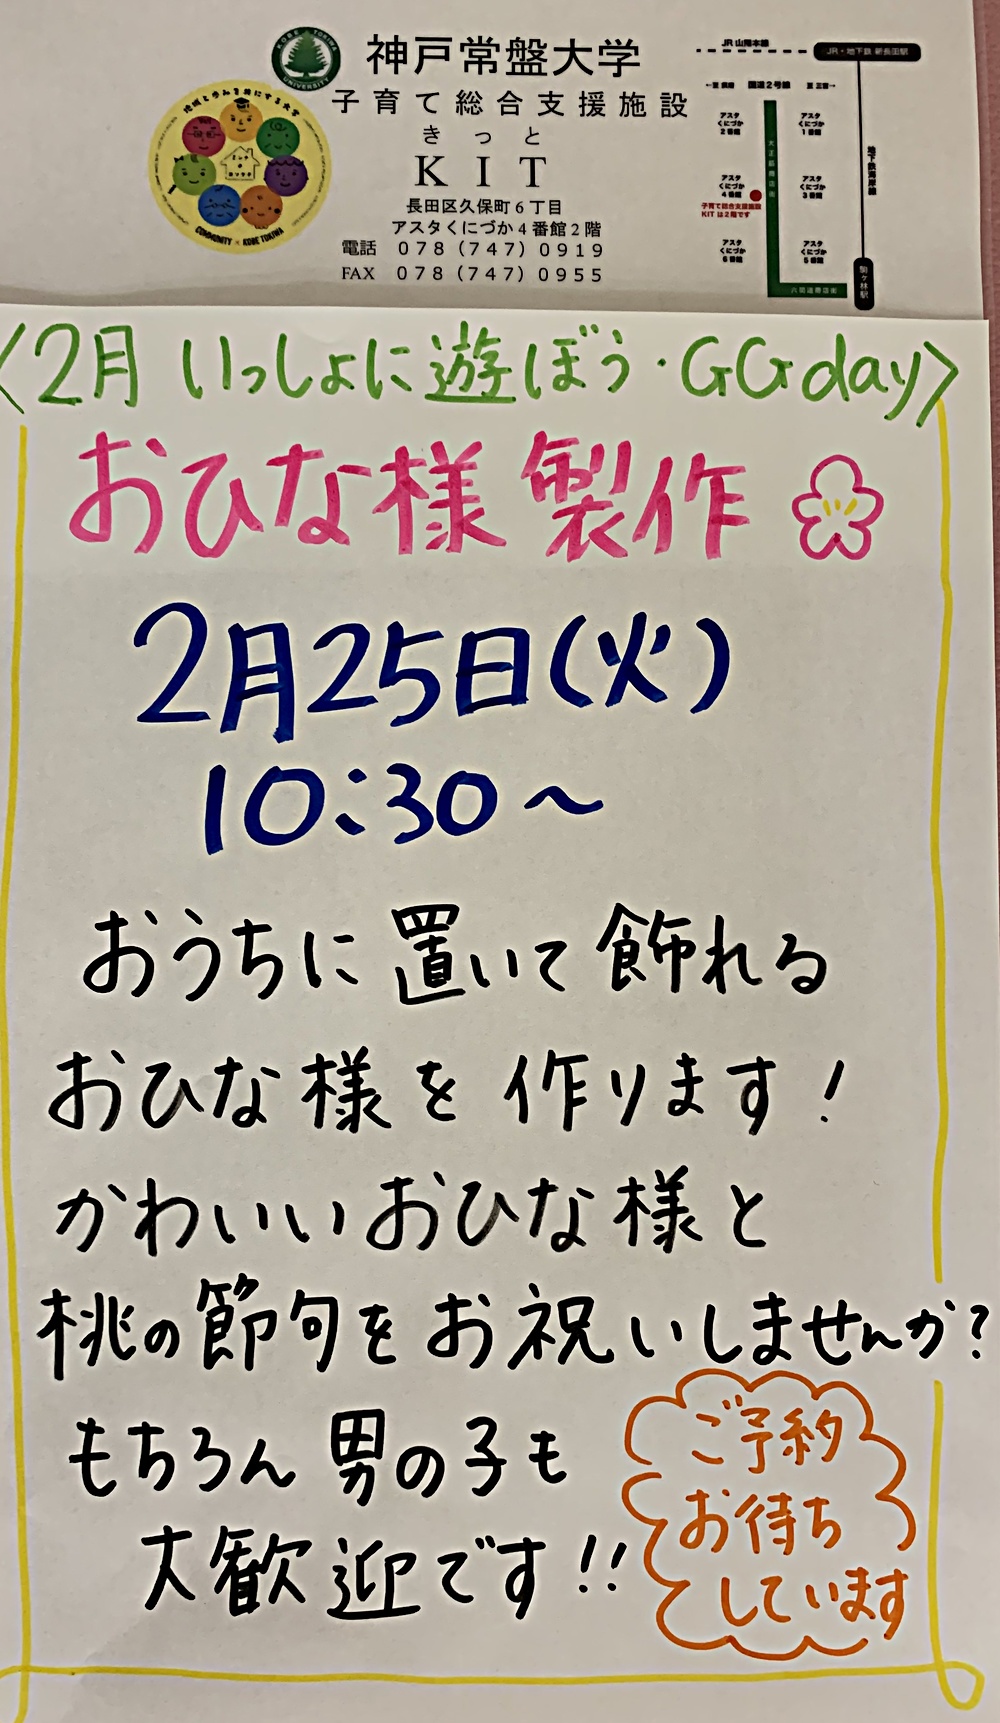 神戸常盤大学
子育て総合支援施設
きっと
KIT
長田区久保町6丁目
アスタくにづか4番館2階
電話 078(747)0919
FAX 078(747)0955
KOBE TOKIWA
UNIVERSITY
地域と歩みを共にする大学
COMMUNITY × KOBE TOKIWA
JR 山陽本線
JR・地下鉄 新長田駅
国道2号線
アスタ
くにづか
2番館
アスタ
くにづか
1番館
大正筋商店街
地下鉄海岸線
アスタ
くにづか
4番館
アスタ
くにづか
3番館
子育て総合支援施設
KIT は2階です
アスタ
くにづか
6番館
アスタ
くにづか
5番館
六間道商店街
駒ヶ林駅
〈2月 いっしょに遊ぼう・GGday〉
おひな様 製作
2月25日(火)
10:30～
おうちに 置いて 飾れる
おひな様を 作ります!
かわいいおひな様と
桃の節句を お祝いしませんか?
もちろん 男の子も
大歓迎です!!
ご予約
お待ち
しています